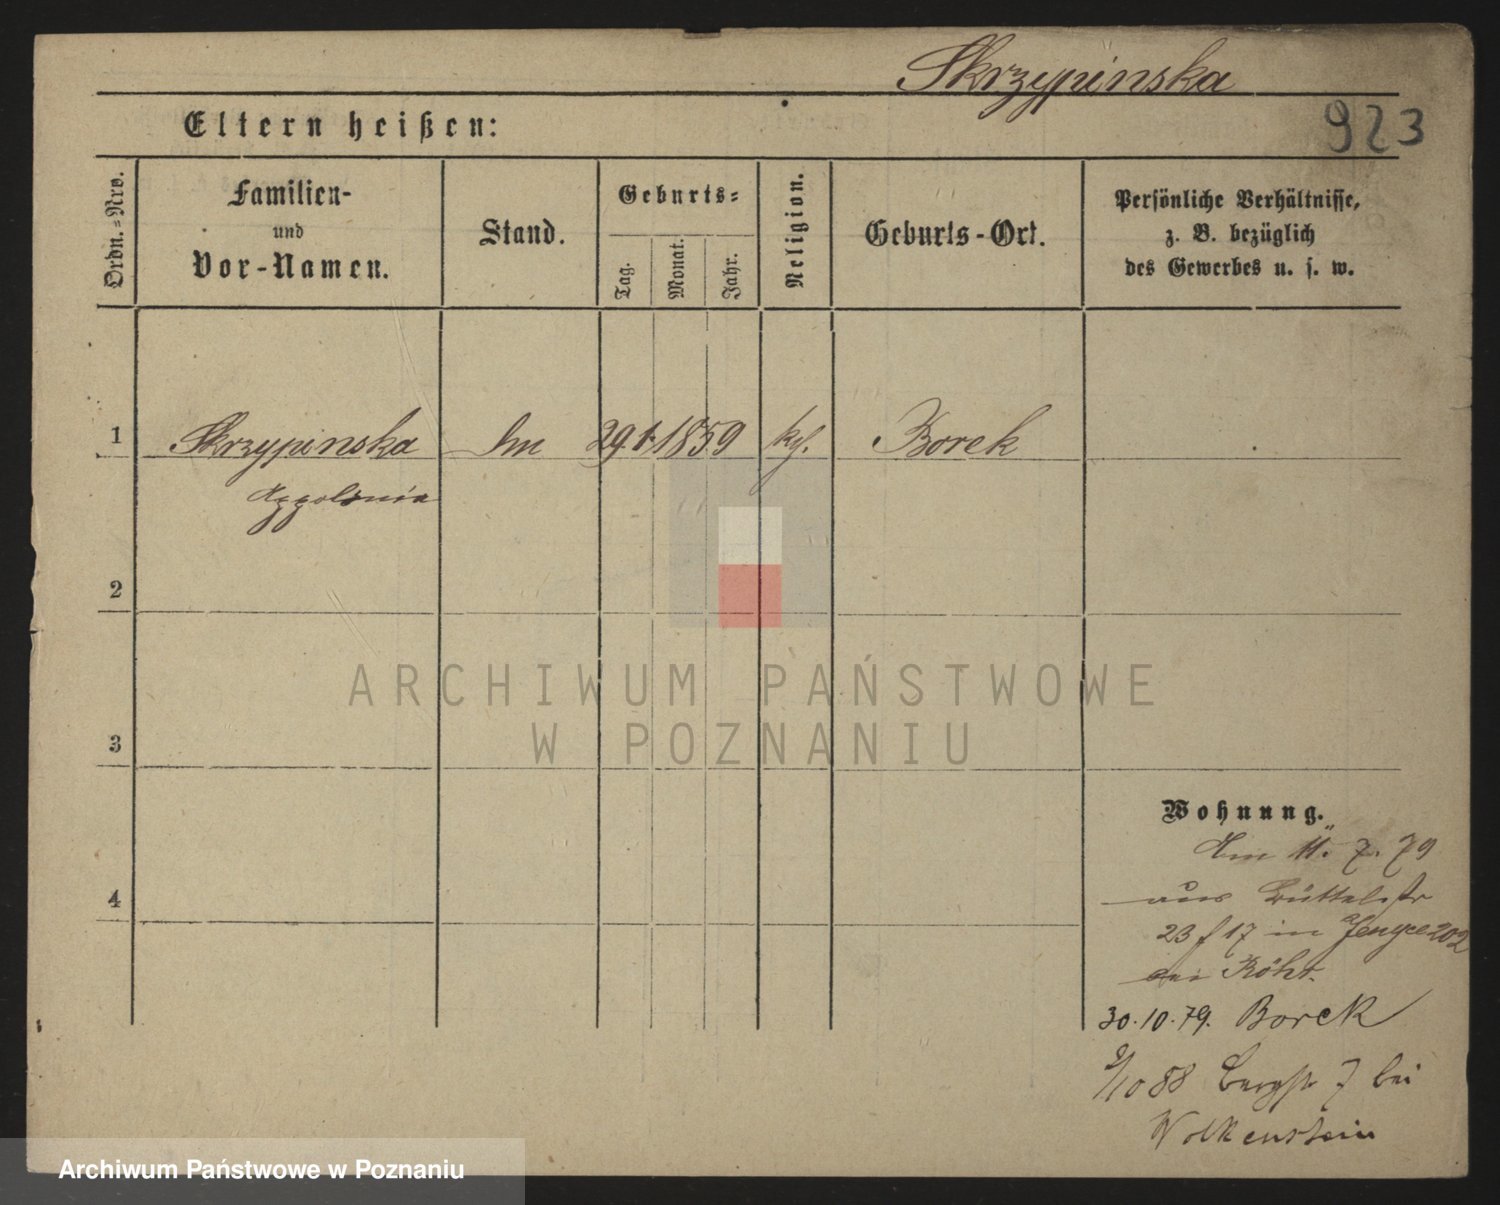 Skrzypinska
923
Eltern heißen:
Ordn.=Nro.
Familien-
und
Vor-Namen.
Stand.
Geburts=
Tag.
Monat.
Jahr.
Religion.
Geburts-Ort.
Persönliche Verhältnisse,
z. B. bezüglich
des Gewerbes u. s. w.
1 Skrzypinska 29 1. 1859 Borek
Appolonia
2
3
4
ARCHIWUM PAŃSTWOWE
W POZNANIU
Wohnung.
Am 11. 7. 79
aus Büttelstr
23 f 17 in 202
bei
30.10.79. Borek
9/10 88 Bergstr 7 bei
Wolkenstein
Archiwum Państwowe w Poznaniu